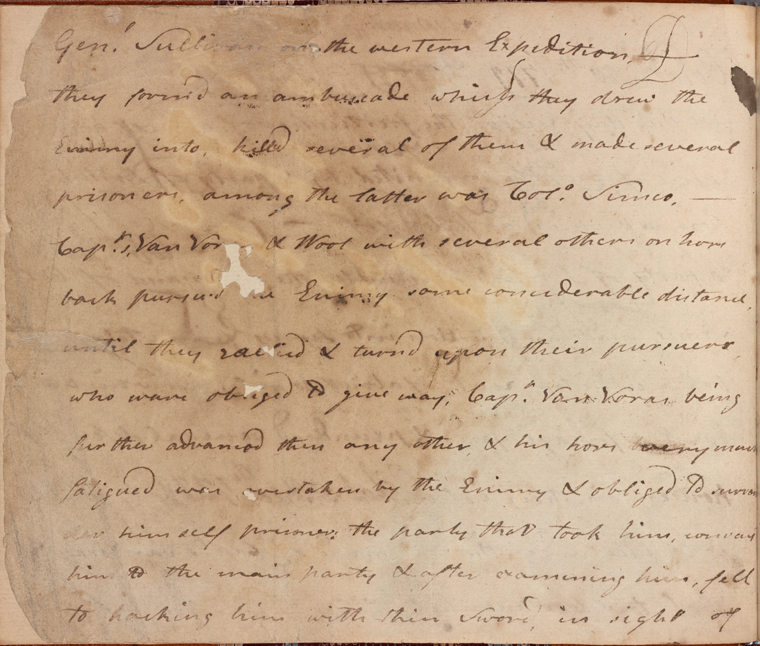 Genl. Sullivan on the western Expedition
they formd an ambuscade which they drew the
Enimy into, killd several of them & made several
prisoners, among the latter was Colo. Simco, —
Capns. Van Vor & Wool with several others on hors
back pursued the Enimy some considerable distance,
until they rallied & turnd upon their pursuers
who ware obliged to give way, Capn. Van Voras being
further advanced then any other, & his hors very much
fatigued was overtaken by the Enimy & obliged to surren
der him self prisoner; the party that took him,
him to the main party & after examining him, fell
to hacking him with thier Sword, in sight of